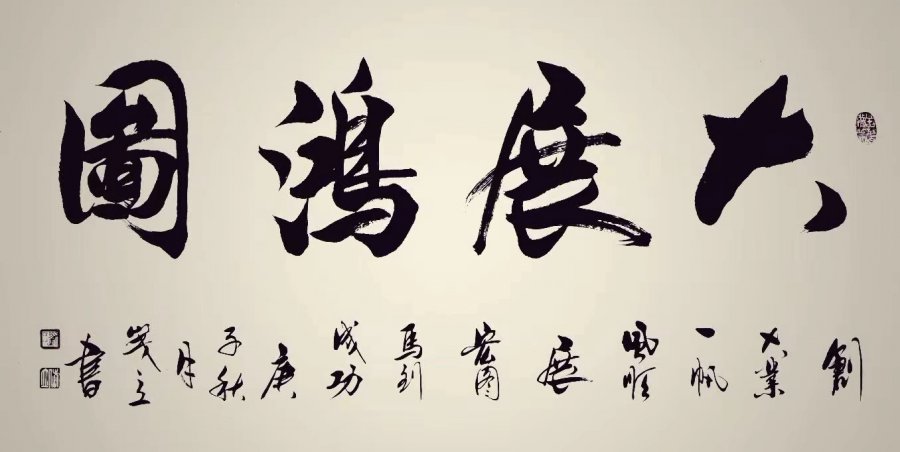 大展鴻圖
創大業一帆風順展宏图馬到成功庚子秋月立書